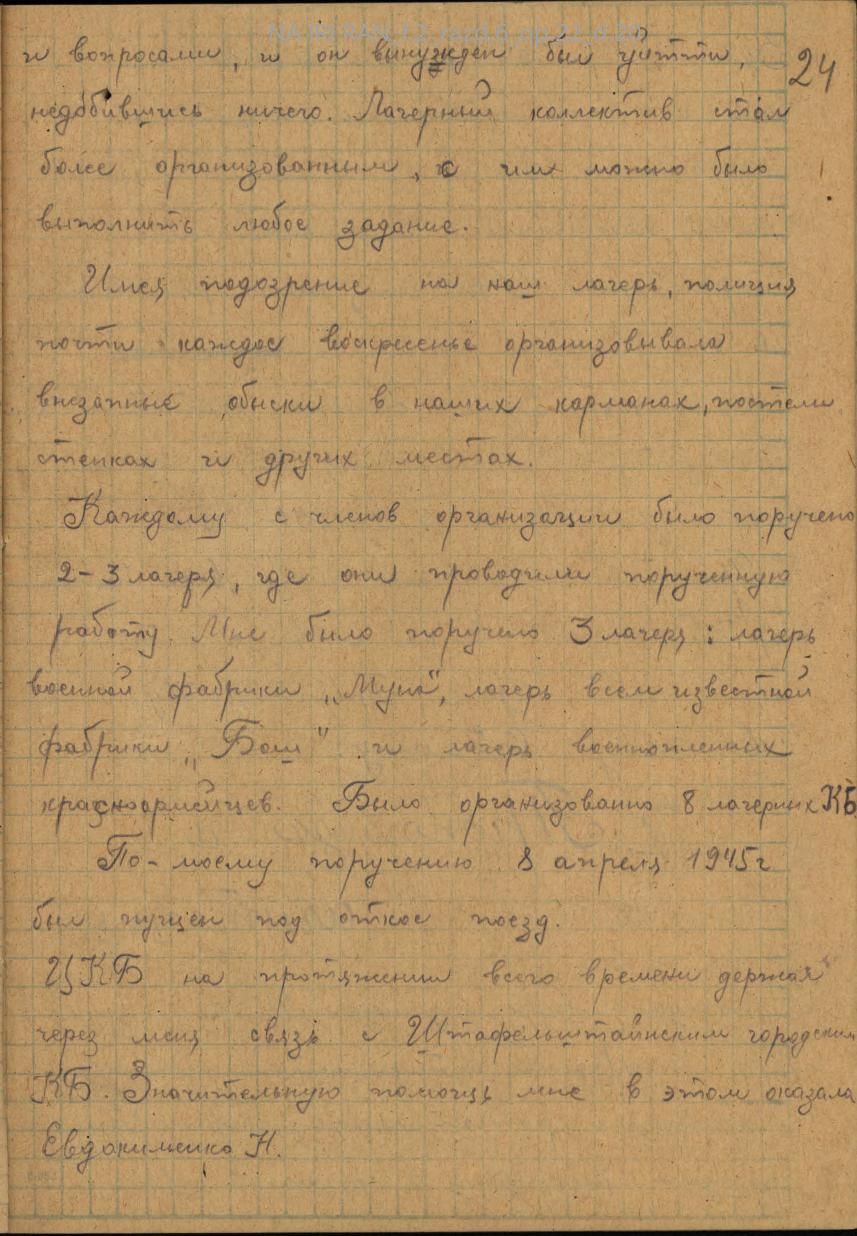 24
и вопросами, и он вынужден был уйтти,
недобившись ничего. Лагерный коллектив стал
более организованным, с чим можно было
выполнить любое задание.
Имея подозрение на наш лагерь, полиция
почти каждое воскресенье организовывала
внезапные обыски в наших карманах, постели
стенках и других местах.
Каждому с членов организации было поручено
2-3 лагеря, где они проводили порученную
работу. Мне было поручено 3 лагеря: лагерь
военной фабрики лагерь всем известной
фабрики „Бош" и лагерь военнопленных
красноармейцев. Было организованно 8 лагерних КБ
По-моему поручению 8 апреля 1945г
был пущен под откос поезд.
ЦКБ на протяжении всего времени держал
через меня связь с Штафельштайнским городским
КБ. Значительную помощь мне в этом оказала
Евдокименко Н.